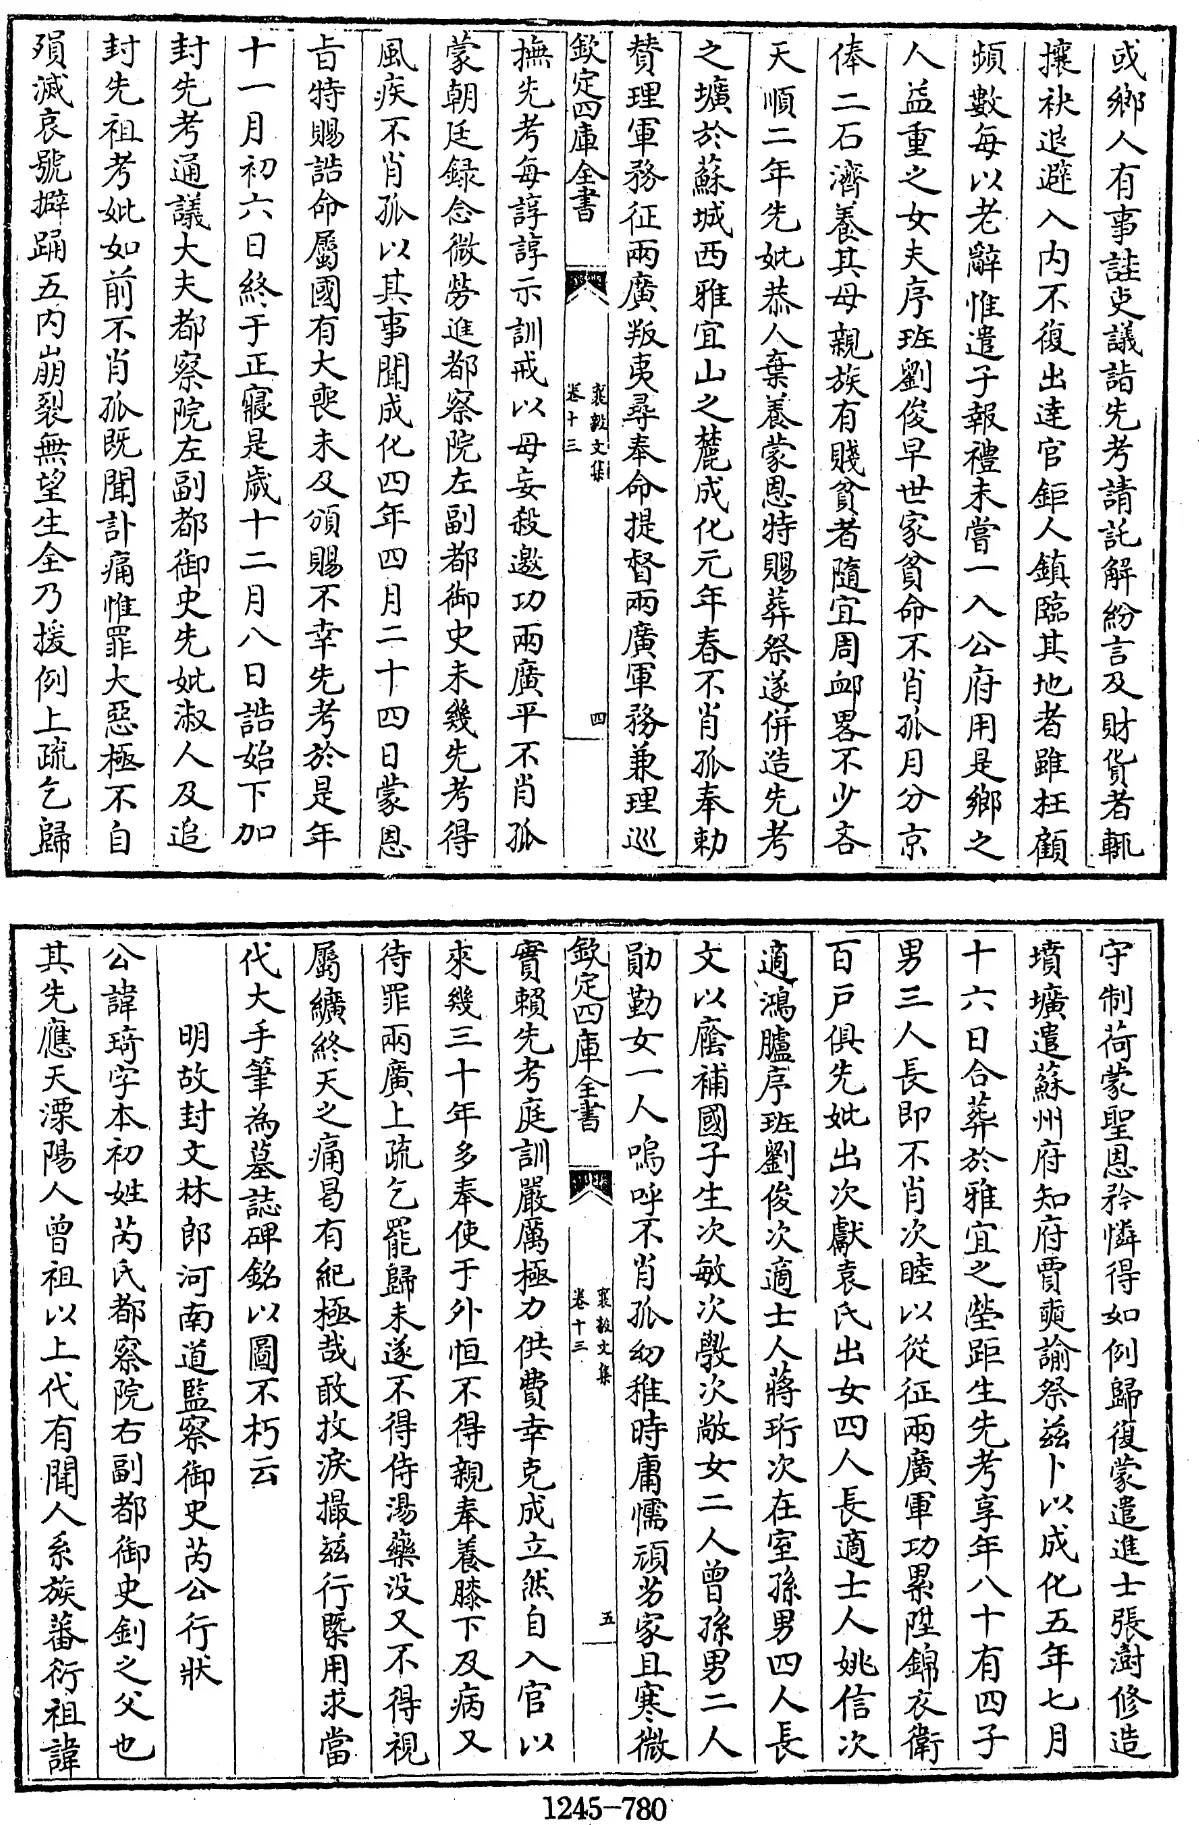 或鄉人有事詿吏議詣先考請託解紛言及財貨者輒
攘袂退避入内不復出達官鉅人鎮臨其地者雖枉顧
頻數每以老辭惟遣子報禮未嘗一入公府用是鄉之
人益重之女夫序班劉俊早世家貧命不肖孤月分京
俸二石濟養其母親族有賤貧者隨宜周卹畧不少吝
天順二年先妣恭人棄養蒙恩特賜葬祭遂併造先考
之壙於蘇城西雅宜山之麓成化元年春不肖孤奉勅
賛理軍務征兩廣叛夷尋奉命提督兩廣軍務兼理巡
欽定四庫全書
襄毅文集
卷十三
四
撫先考每諄諄示訓戒以毋妄殺邀功兩廣平不肖孤
蒙朝廷録念微勞進都察院左副都御史未幾先考得
風疾不肖孤以其事聞成化四年四月二十四日蒙恩
旨特賜誥命屬國有大喪未及頒賜不幸先考於是年
十一月初六日終于正寢是歲十二月八日誥始下加
封先考通議大夫都察院左副都御史先妣淑人及追
封先祖考妣如前不肖孤既聞訃痛惟罪大惡極不自
殞滅哀號擗踊五内崩裂無望生全乃援例上疏乞歸
守制荷蒙聖恩矜憐得如例歸復蒙遣進士張澍修造
墳壙遣蘇州府知府賈奭諭祭兹卜以成化五年七月
十六日合葬於雅宜之塋距生先考享年八十有四子
男三人長即不肖次睦以從征兩廣軍功累陞錦衣衛
百戸俱先妣出次獻袁氏出女四人長適士人姚信次
適鴻臚序班劉俊次適士人蔣珩次在室孫男四人長
文以廕補國子生次敏次斆次敞女二人曾孫男二人
勛勤女一人嗚呼不肖孤幼稚時庸懦頑劣家且寒微
欽定四庫全書
襄毅文集
卷十三
五
實賴先考庭訓嚴厲極力供費幸克成立然自入官以
來幾三十年多奉使于外恒不得親奉養膝下及病又
待罪兩廣上疏乞罷歸未遂不得侍湯藥没又不得視
屬纊終天之痛曷有紀極哉敢抆淚撮兹行槩用求當
代大手筆為墓誌碑銘以圖不朽云
明故封文林郎河南道監察御史芮公行狀
公諱琦字本初姓芮氏都察院右副都御史釗之父也
其先應天溧陽人曾祖以上代有聞人系族蕃衍祖諱
1245-780